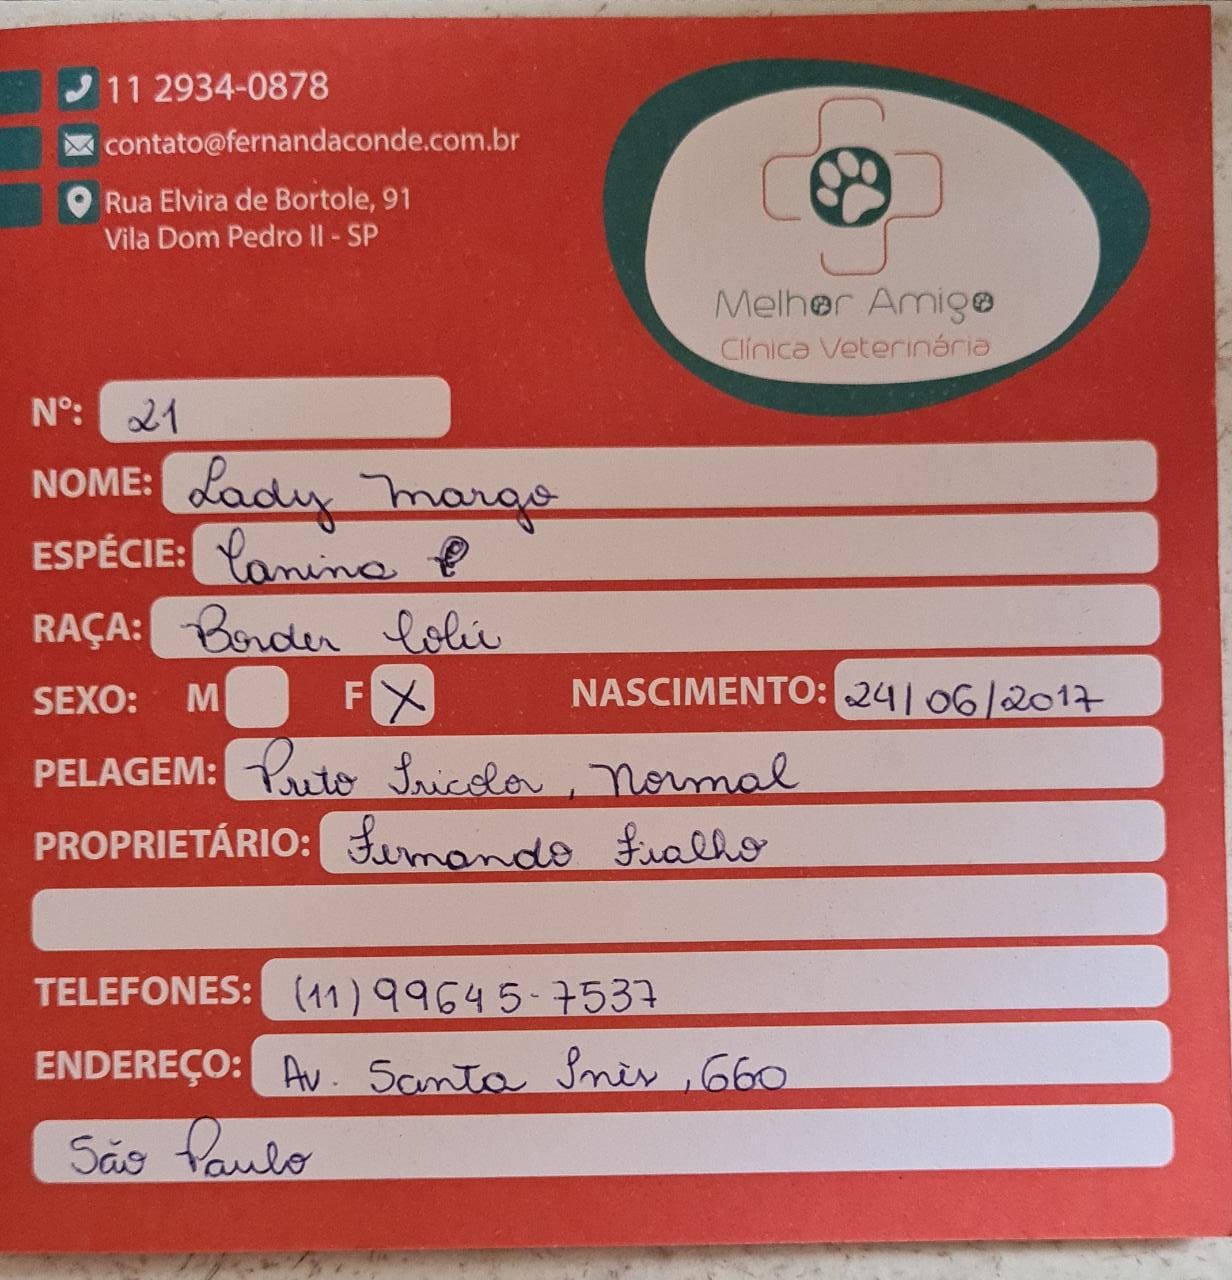 11 2934-0878
contato@fernandaconde.com.br
Rua Elvira de Bortole, 91
Vila Dom Pedro II - SP
Melhor Amigo
Clínica Veterinária
Nº: 21
NOME: Lady Margo
ESPÉCIE: Canina
RAÇA: Border Colie
SEXO: M F X NASCIMENTO: 24/06/2017
PELAGEM: Preto Tricolor, Normal
PROPRIETÁRIO: Fernando Fialho
TELEFONES: (11) 99645-7537
ENDEREÇO: Av. Santa Inês, 660
São Paulo